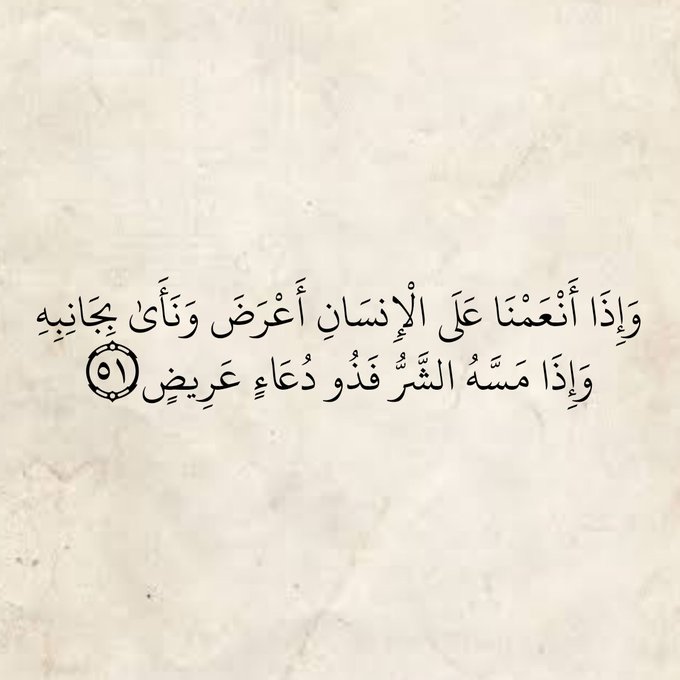 وَإِذَا أَنْعَمْنَا عَلَى الْإِنسَانِ أَعْرَضَ وَنَأَىٰ بِجَانِبِهِ
وَإِذَا مَسَّهُ الشَّرُّ فَذُو دُعَاءٍ عَرِيضٍ ٥١